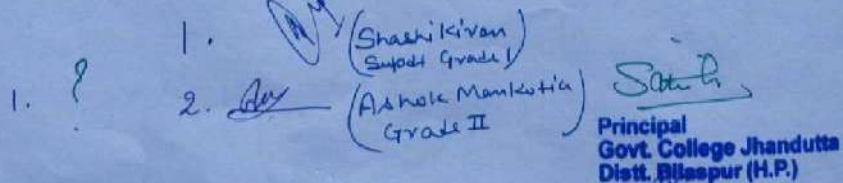 1.
1. (Shashi Kiran
Supdt Grade I)
2. (Ashok Mankotia
Grade II)
Principal
Govt. College Jhandutta
Distt. Bilaspur (H.P.)